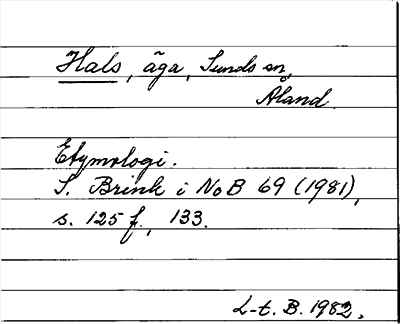 Hals, äga, Sunds sn,
Åland.
Etymologi.
S. Brink i NoB 69 (1981),
s. 125 f., 133.
L-t. B. 1982.